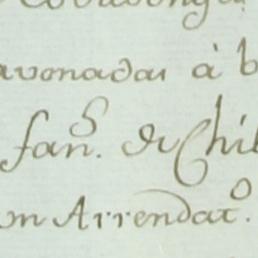 avonadas à b
fan.s de Chil
on Arrendat.o